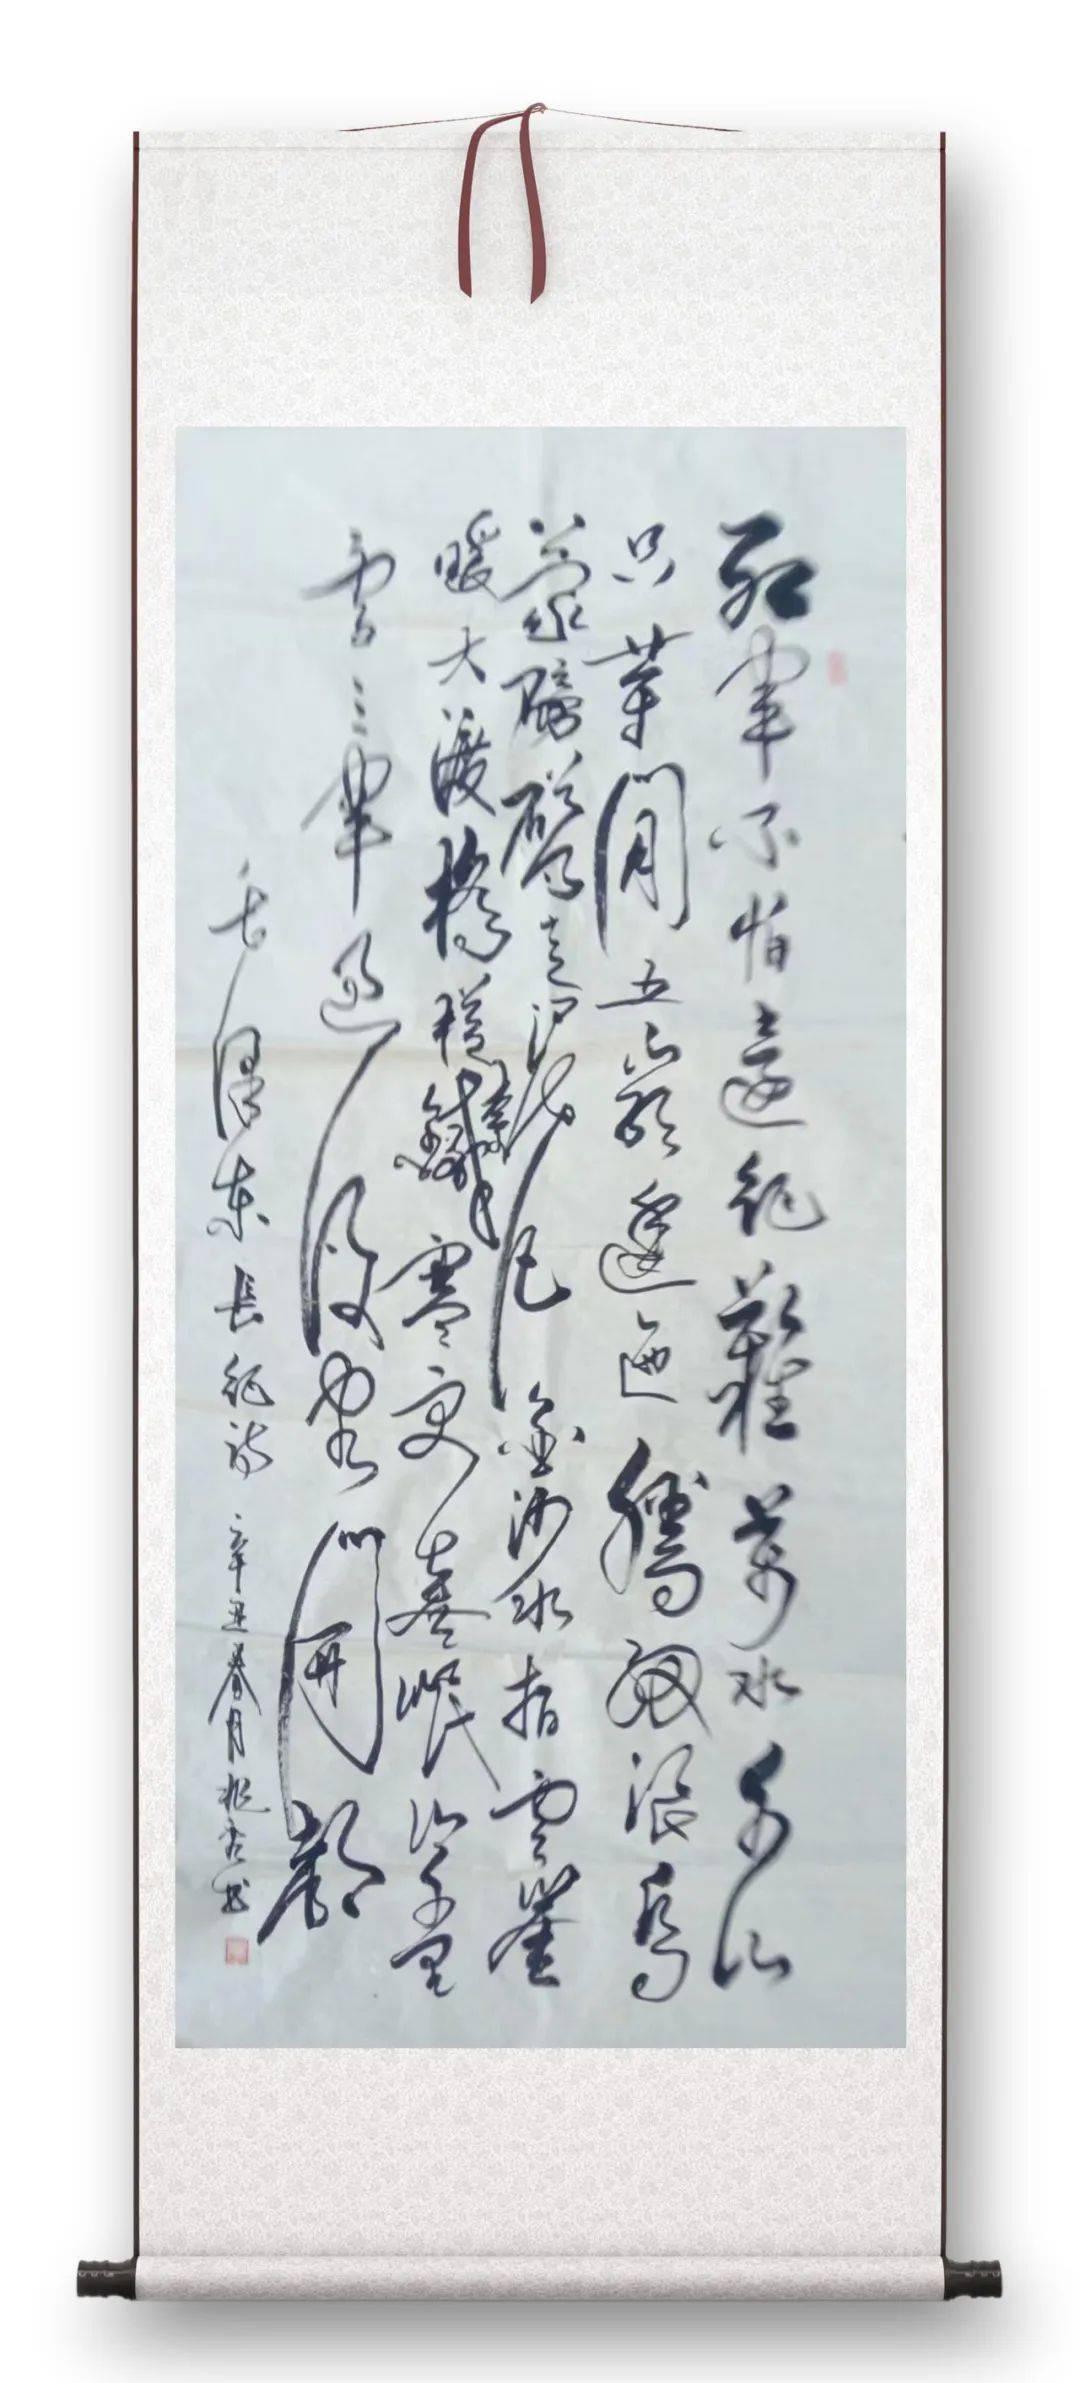 紅軍不怕遠征難萬水千山
只等閒五嶺逶迤騰細浪烏
蒙磅礴走泥丸金沙水拍雲崖
暖大渡橋橫鐵索寒更喜岷山千里
雪三軍過後盡開顏
毛澤東長征詩 辛丑春月 兆书